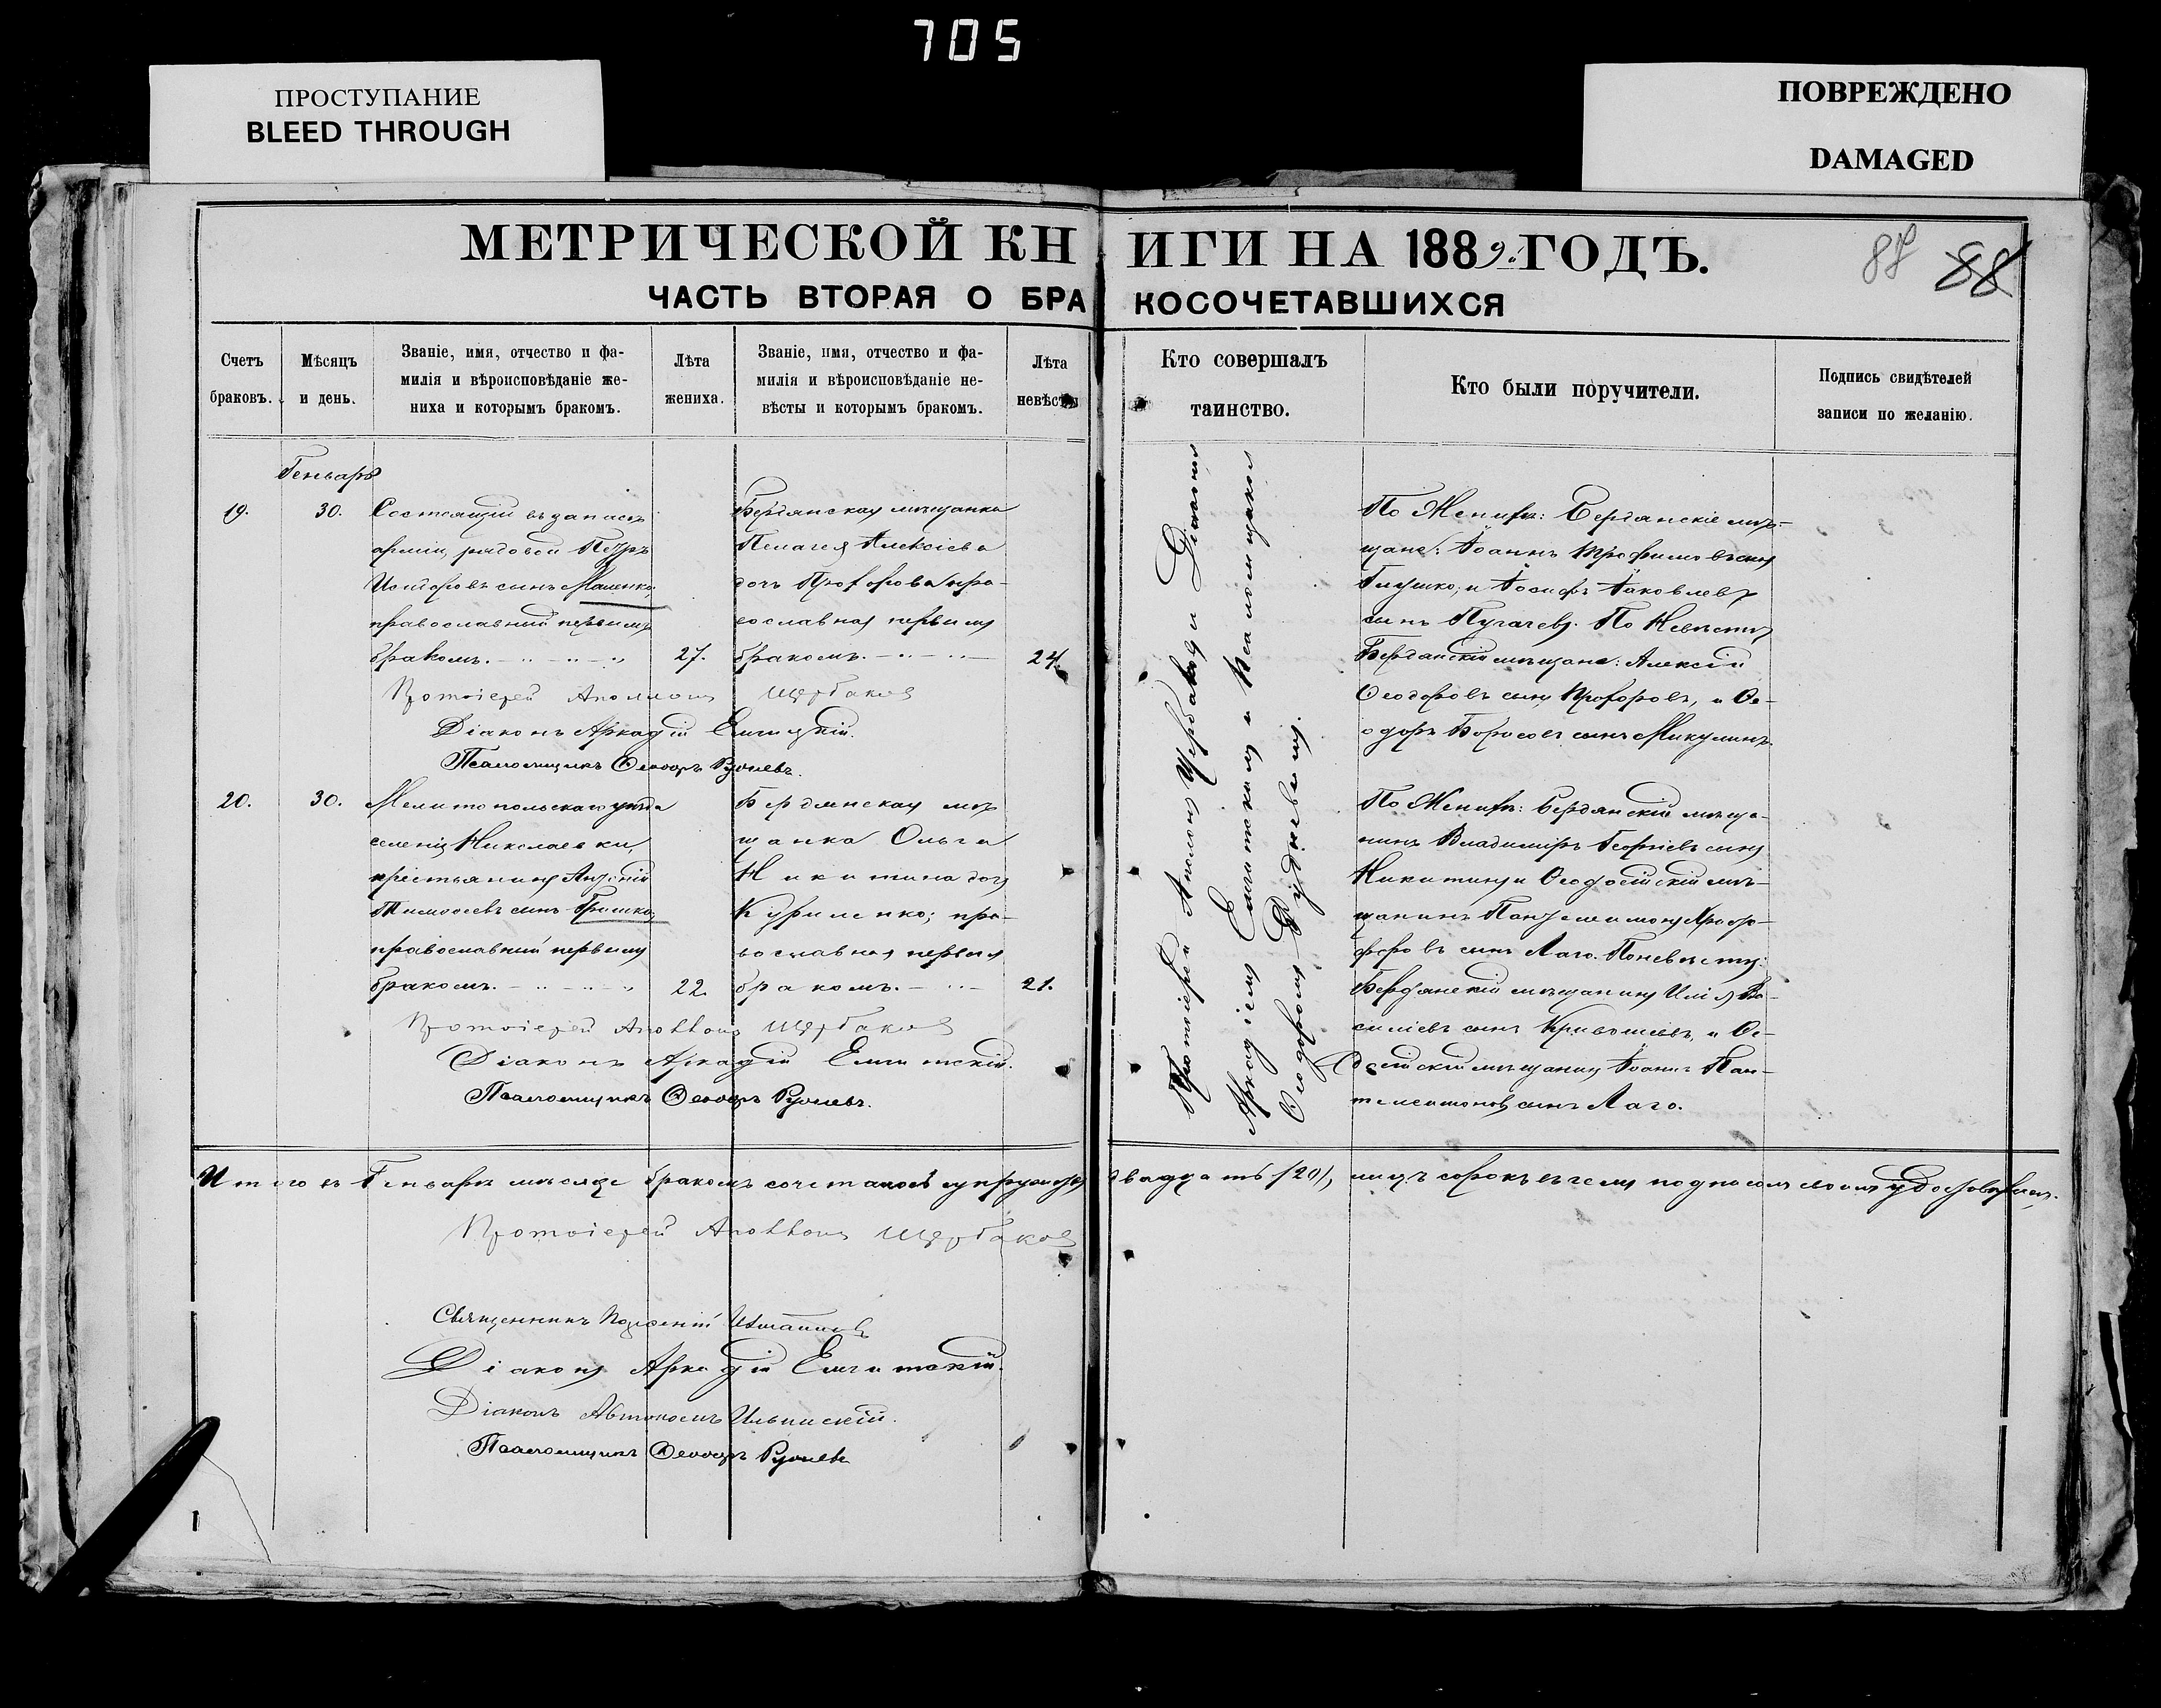 705
ПРОСТУПАНИЕ
BLEED THROUGH
ПОВРЕЖДЕНО
DAMAGED
МЕТРИЧЕСКОЙ КНИГИ НА 1889 ГОДЪ.
87 88
ЧАСТЬ ВТОРАЯ О БРАКОСОЧЕТАВШИХСЯ
Счетъ браковъ.
Мѣсяцъ и день.
Званіе, имя, отчество и фа-
милія и вѣроисповѣданіе же-
ниха и которымъ бракомъ.
Лѣта жениха.
Званіе, имя, отчество и фа-
милія и вѣроисповѣданіе не-
вѣсты и которымъ бракомъ.
Лѣта невѣсты
Кто совершалъ
таинство.
Кто были поручители.
Подпись свидѣтелей
записи по желанію.
Генварь
19.
30.
Состоящій въ запасѣ
арміи, рядовой Петръ
сынъ Маленко,
православный первымъ
бракомъ.
27.
Бердянская мѣщанка
Пелагея Алексіева
дочь Прохорова пра-
вославная первымъ
бракомъ.
24.
Протоіерей Аполлонъ Щербаковъ
Діаконъ Аркадій
Псаломщикъ Ѳеодоръ
По Женихѣ: Бердянскіе мѣ-
щане: Іоаннъ Трофимовъ сынъ
Глушко, и Іосифъ Іаковлевъ
сынъ Пугачевъ. По Невѣстѣ
Бердянскіе мѣщане: Алексій
Ѳеодоровъ сынъ Прохоровъ, и Ѳе-
одоръ Борисовъ сынъ Микулинъ.
20.
30.
Мелитопольскаго уѣзда
селенія Николаевки,
крестьянинъ
Тимоѳеевъ сынъ Гришко,
православный первымъ
бракомъ.
22.
Бердянская мѣ-
щанка Ольга
Никитина дочь
Куриленко; пра-
вославная первымъ
бракомъ.
21.
Протоіерей Аполлонъ Щербаковъ
Діаконъ Аркадій
Псаломщикъ Ѳеодоръ
По Женихѣ: Бердянскій мѣща-
нинъ Владиміръ Георгіевъ сынъ
Никитинъ и Ѳеодосійскій мѣ-
щанинъ Пантелеимонъ
сынъ Лаго. По невѣстѣ:
Бердянскій мѣщанинъ Илія Ва-
силіевъ сынъ и Ѳе-
одосійскій мѣщанинъ Іоаннъ Пан-
телеимоновъ сынъ Лаго.
Протоіерей Аполлонъ Щербаковъ и Діаконъ
Аркадіемъ и Псаломщикомъ
Ѳеодоромъ
Итого въ Генварѣ мѣсяцѣ бракомъ сочетались супруговъ двадцать (20), лицъ сорокъ въ чемъ подписомъ своимъ удостовѣряемъ.
Протоіерей Аполлонъ Щербаковъ
Священникъ
Діаконъ Аркадій
Діаконъ Автономъ Ильинскій.
Псаломщикъ Ѳеодоръ